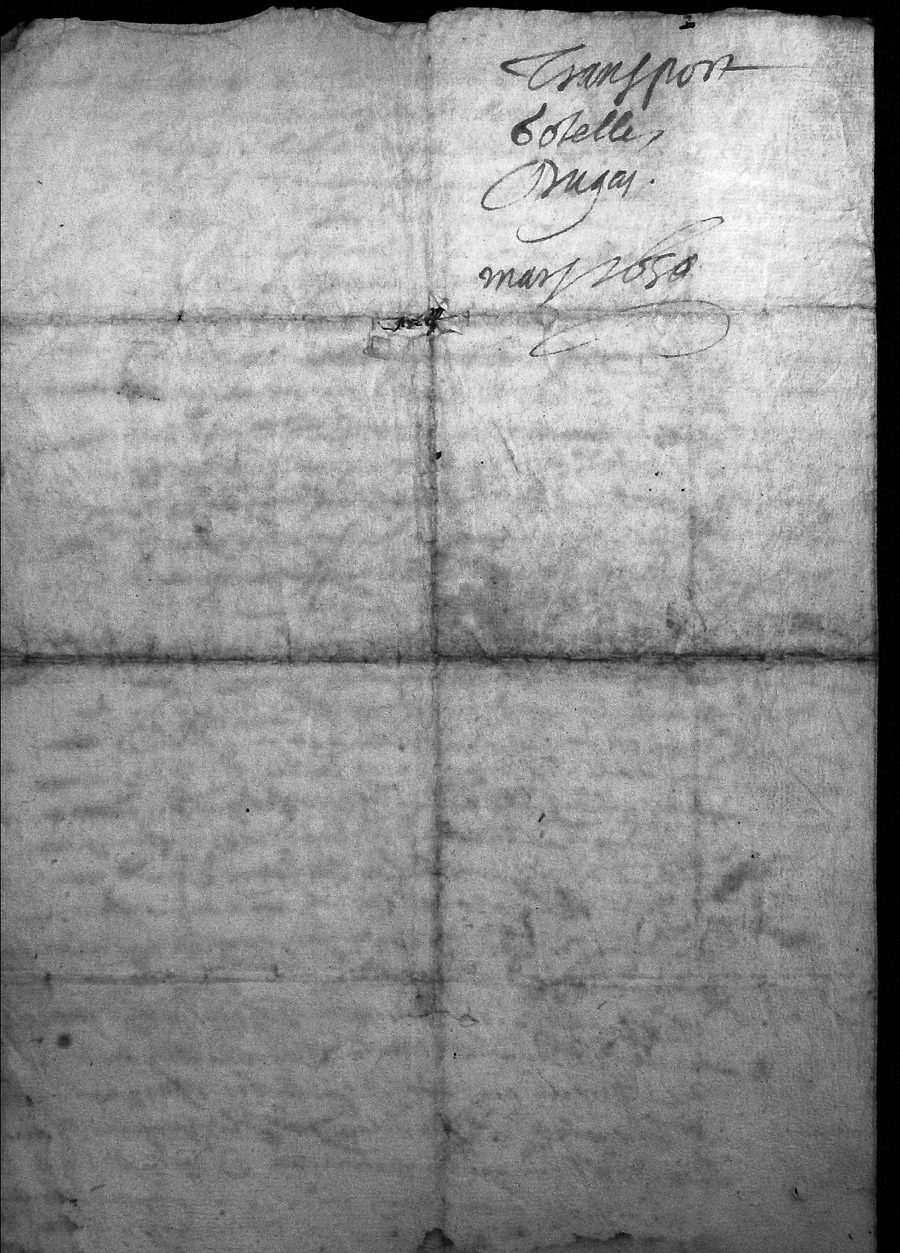 Transport
botelles
Dugas.
mars 1650